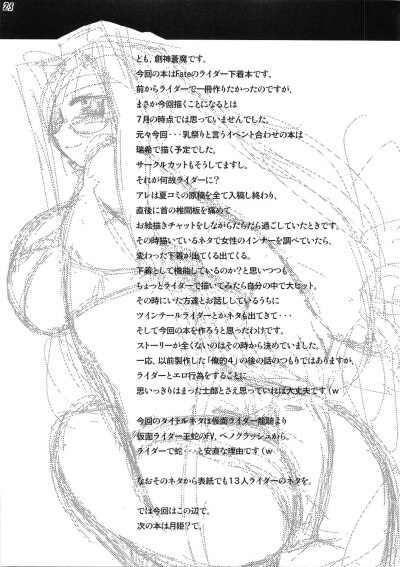 24
ども、創神蒼魔です。
今回の本はFateのライダー下着本です。
前からライダーで一冊作りたかったのですが、
まさか今回描くことになるとは
7月の時点では思っていませんでした。
元々今回・・・乳祭りと言うイベント合わせの本は
瑞希で描く予定でした。
サークルカットもそうしてますし。
それが何故ライダーに?
アレは夏コミの原稿を全て入稿し終わり、
直後に首の椎間板を痛めて
お絵描きチャットをしながらだらだら過ごしていたときです。
その時描いているネタで女性のインナーを調べていたら、
変わった下着が出てくる出てくる。
下着として機能しているのか?と思いつつも
ちょっとライダーで描いてみたら自分の中で大ヒット。
その時にいた方達とお話ししているうちに
ツインテールライダーとかネタも出てきて・・・
そして今回の本を作ろうと思ったわけです。
ストーリーが全くないのはその時から決めていました。
一応、以前製作した「俺的4」の後の話のつもりではありますが、
ライダーとエロ行為をすることに
思いっきりはまった士郎とさえ思っていれば大丈夫です(w
今回のタイトルネタは仮面ライダー龍騎より
仮面ライダー王蛇のFV、ベノクラッシュから。
ライダーで蛇・・・と安直な理由です(w
なおそのネタから表紙でも13人ライダーのネタを。
では今回はこの辺で。
次の本は月姫?で。